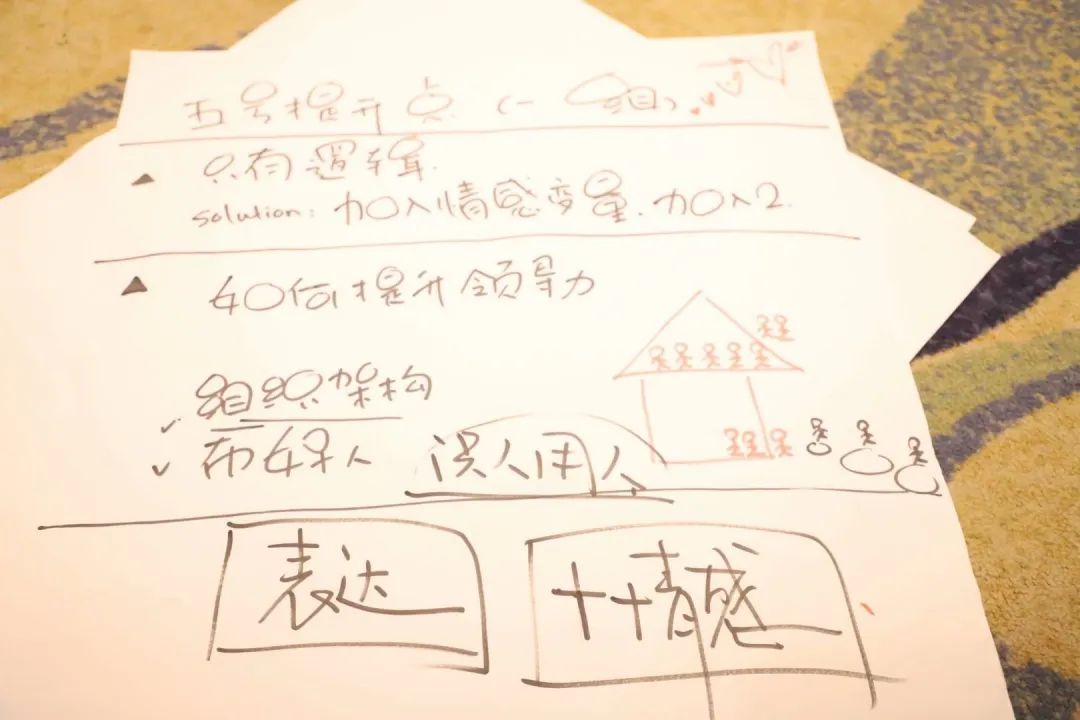 五号提升点 (一组)
▲ 只有逻辑.
solution: 加入情感变量. 加入2.
▲ 如何提升领导力
组织架构
✓ 布好人 识人用人
表达 ++情感